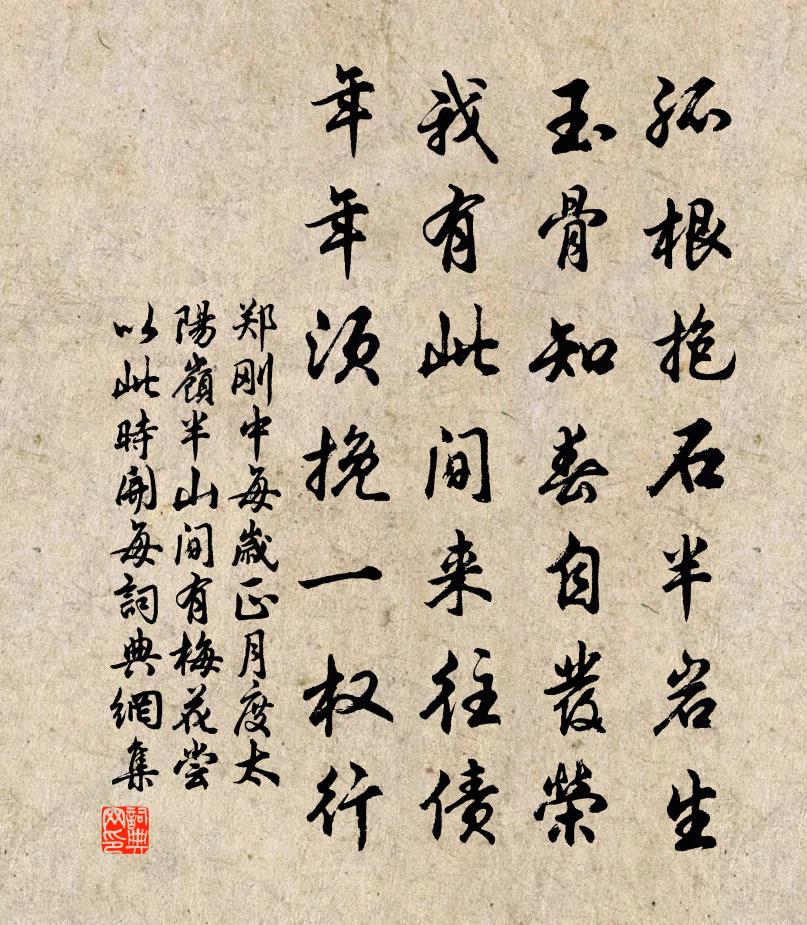 孤根抱石半岩生
玉骨知春自發榮
我有此间来往债
年年须挽一权行
郑刚中每歲正月度太
陽嶺半山间有梅花尝
以此時開每詞典網集
詞典网印